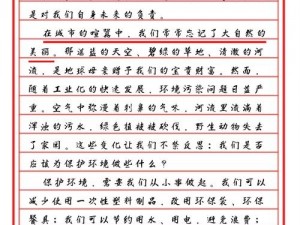 是对我们自身未来的负责。
在城市的喧嚣中，我们常常忘记了大自然的
美丽。那湛蓝的天空、碧绿的草地、清澈的河
流，是地球母亲赠予我们的宝贵财富。然而，
随着工业化的快速发展，环境污染问题日益严
重。空气中弥漫着刺鼻的气味，河流里流淌着
浑浊的污水，绿色植被被砍伐，野生动物失去
了家园。这些变化让我们不禁反思：我们是否
应该为保护环境做些什么？
保护环境，需要我们从小事做起。我们可以
减少使用一次性塑料制品，改用环保袋、环保
餐具；我们可以节约用水、用电，避免浪费；